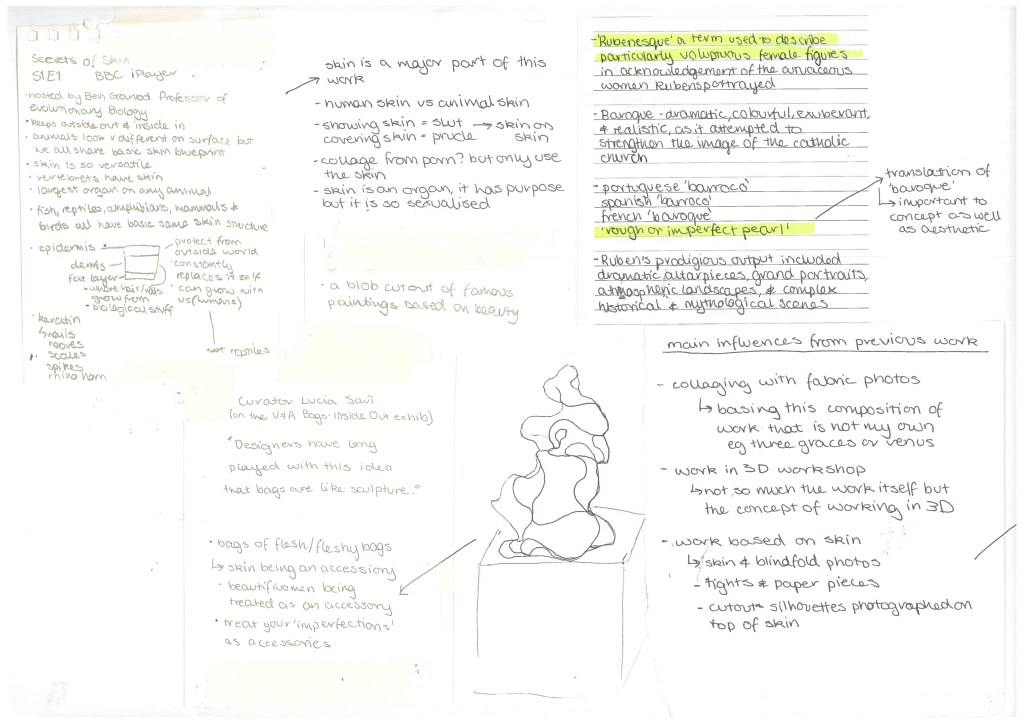 Secrets of Skin
S1E1 BBC iPlayer
• hosted by Ben Garrod Professor of
Evolutionary Biology
• keeps outside out & inside in
• animals look v different on surface but
we all share basic skin blueprint
• skin is so versatile
• vertebrets have skin
• largest organ on any animal
• fish, reptiles, amphibians, mammals &
birds all have basic same skin structure
• epidermis
dermis
fat layer
• where hair/nails
grow from
• biological stuff
• protect from
outside world
• constantly
replaces itself
• can grow with
us (humans)
not reptiles
• keratin
↳ nails
hooves
scales
spikes
rhino horn
skin is a major part of this
work
- human skin vs animal skin
- showing skin = slut → skin on
covering skin = prude skin
- collage from porn? but only use
the skin
- skin is an organ, it has purpose
but it is so sexualised
- a blob cutout of famous
paintings based on beauty
- 'Rubenesque' a term used to describe
particularly voluptuous female figures
in acknowledgement of the curvaceous
women Rubens portrayed
- Baroque - dramatic, colourful, exuberant,
& realistic, as it attempted to
strengthen the image of the catholic
church
- portuguese 'barroco'
spanish 'barroco'
french 'baroque'
'rough or imperfect pearl'
translation of
'baroque'
↳ important to
concept as well
as aesthetic
- Ruben's prodigious output included
dramatic altarpieces, grand portraits,
atmospheric landscapes, & complex
historical & mythological scenes
Curator Lucia Savi
(on the V&A Bags: Inside Out exhib)
"Designers have long
played with this idea
that bags are like sculpture."
• bags of flesh/fleshy bags
↳ skin being an accessory
- beautif women being
treated as an accessory
• treat your 'imperfections'
as accessories
main influences from previous work
- collaging with fabric photos
↳ basing this composition of
work that is not my own
eg three graces or venus
- work in 3D workshop
↳ not so much the work itself but
the concept of working in 3D
- work based on skin
↳ skin & blindfold photos
- tights & paper pieces
- cutout silhouettes photographed on
top of skin